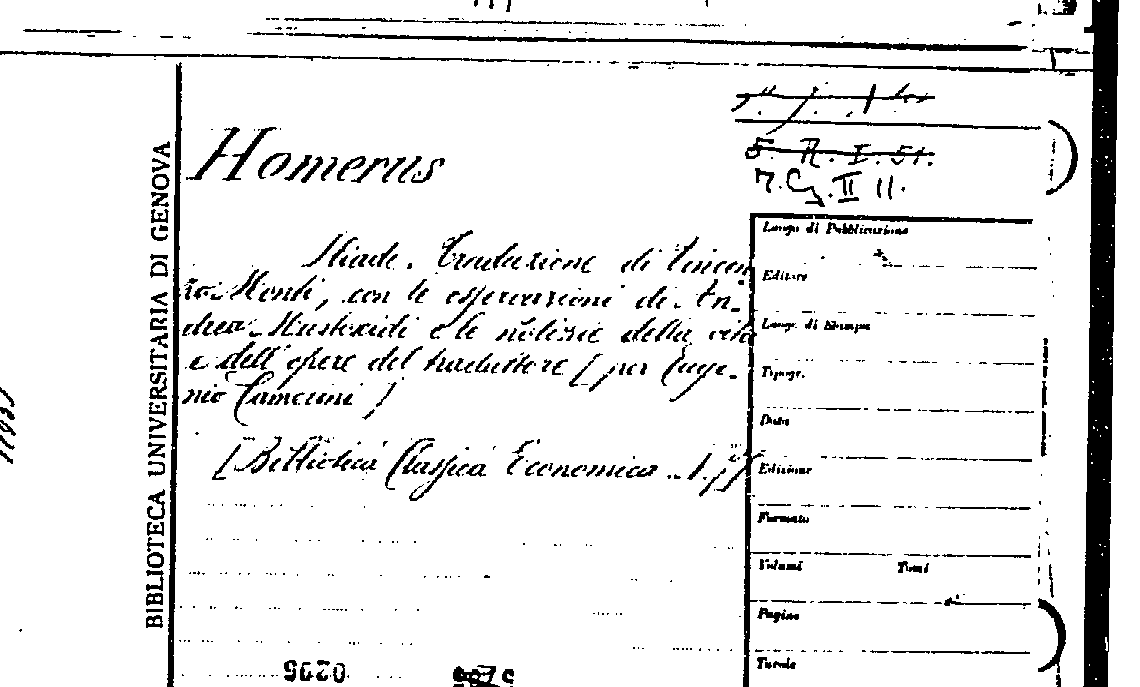 BIBLIOTECA UNIVERSITARIA DI GENOVA
5. R. I. 51.
7. Cz. II 11.
Homerus
Iliade. Traduzione di Vincen
zo Monti, con le osservazioni di An-
drea Mustoxidi e le notizie della vita
e dell'opere del traduttore [per Euge-
nio Camerini]
[Biblioteca Classica Economica. N.
Luogo di Pubblicazione
Editore
Luogo di Stampa
Tipogr.
Data
Edizione
Formato
Volumi Tomi
Pagine
Tavole
0296